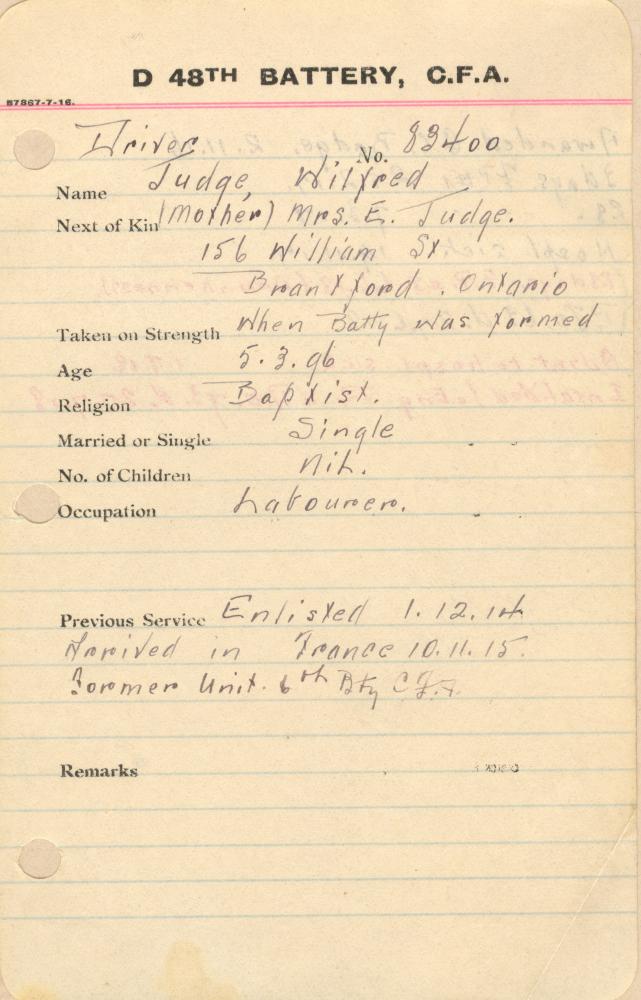 D 48TH BATTERY, C.F.A.
57867-7-16.
Driver No. 83400
Name Judge, Wilfred
Next of Kin (Mother) Mrs. E. Judge.
156 William St
Brantford. Ontario
Taken on Strength When Batty was formed
Age 5.3.96
Religion Baptist.
Married or Single Single
No. of Children Nil.
Occupation Labourer.
Previous Service Enlisted 1.12.14
Arrived in France 10.11.15.
Former Unit. 6th Bty C.F.A.
Remarks